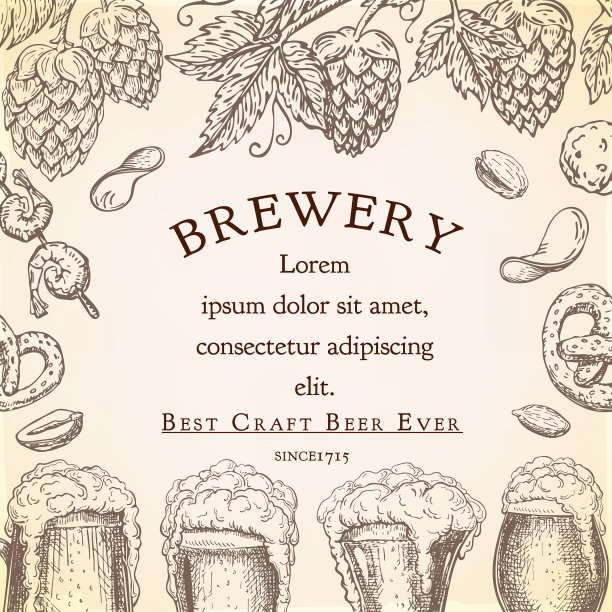 BREWERY
Lorem
ipsum dolor sit amet,
consectetur adipiscing
elit.
BEST CRAFT BEER EVER
SINCE1715